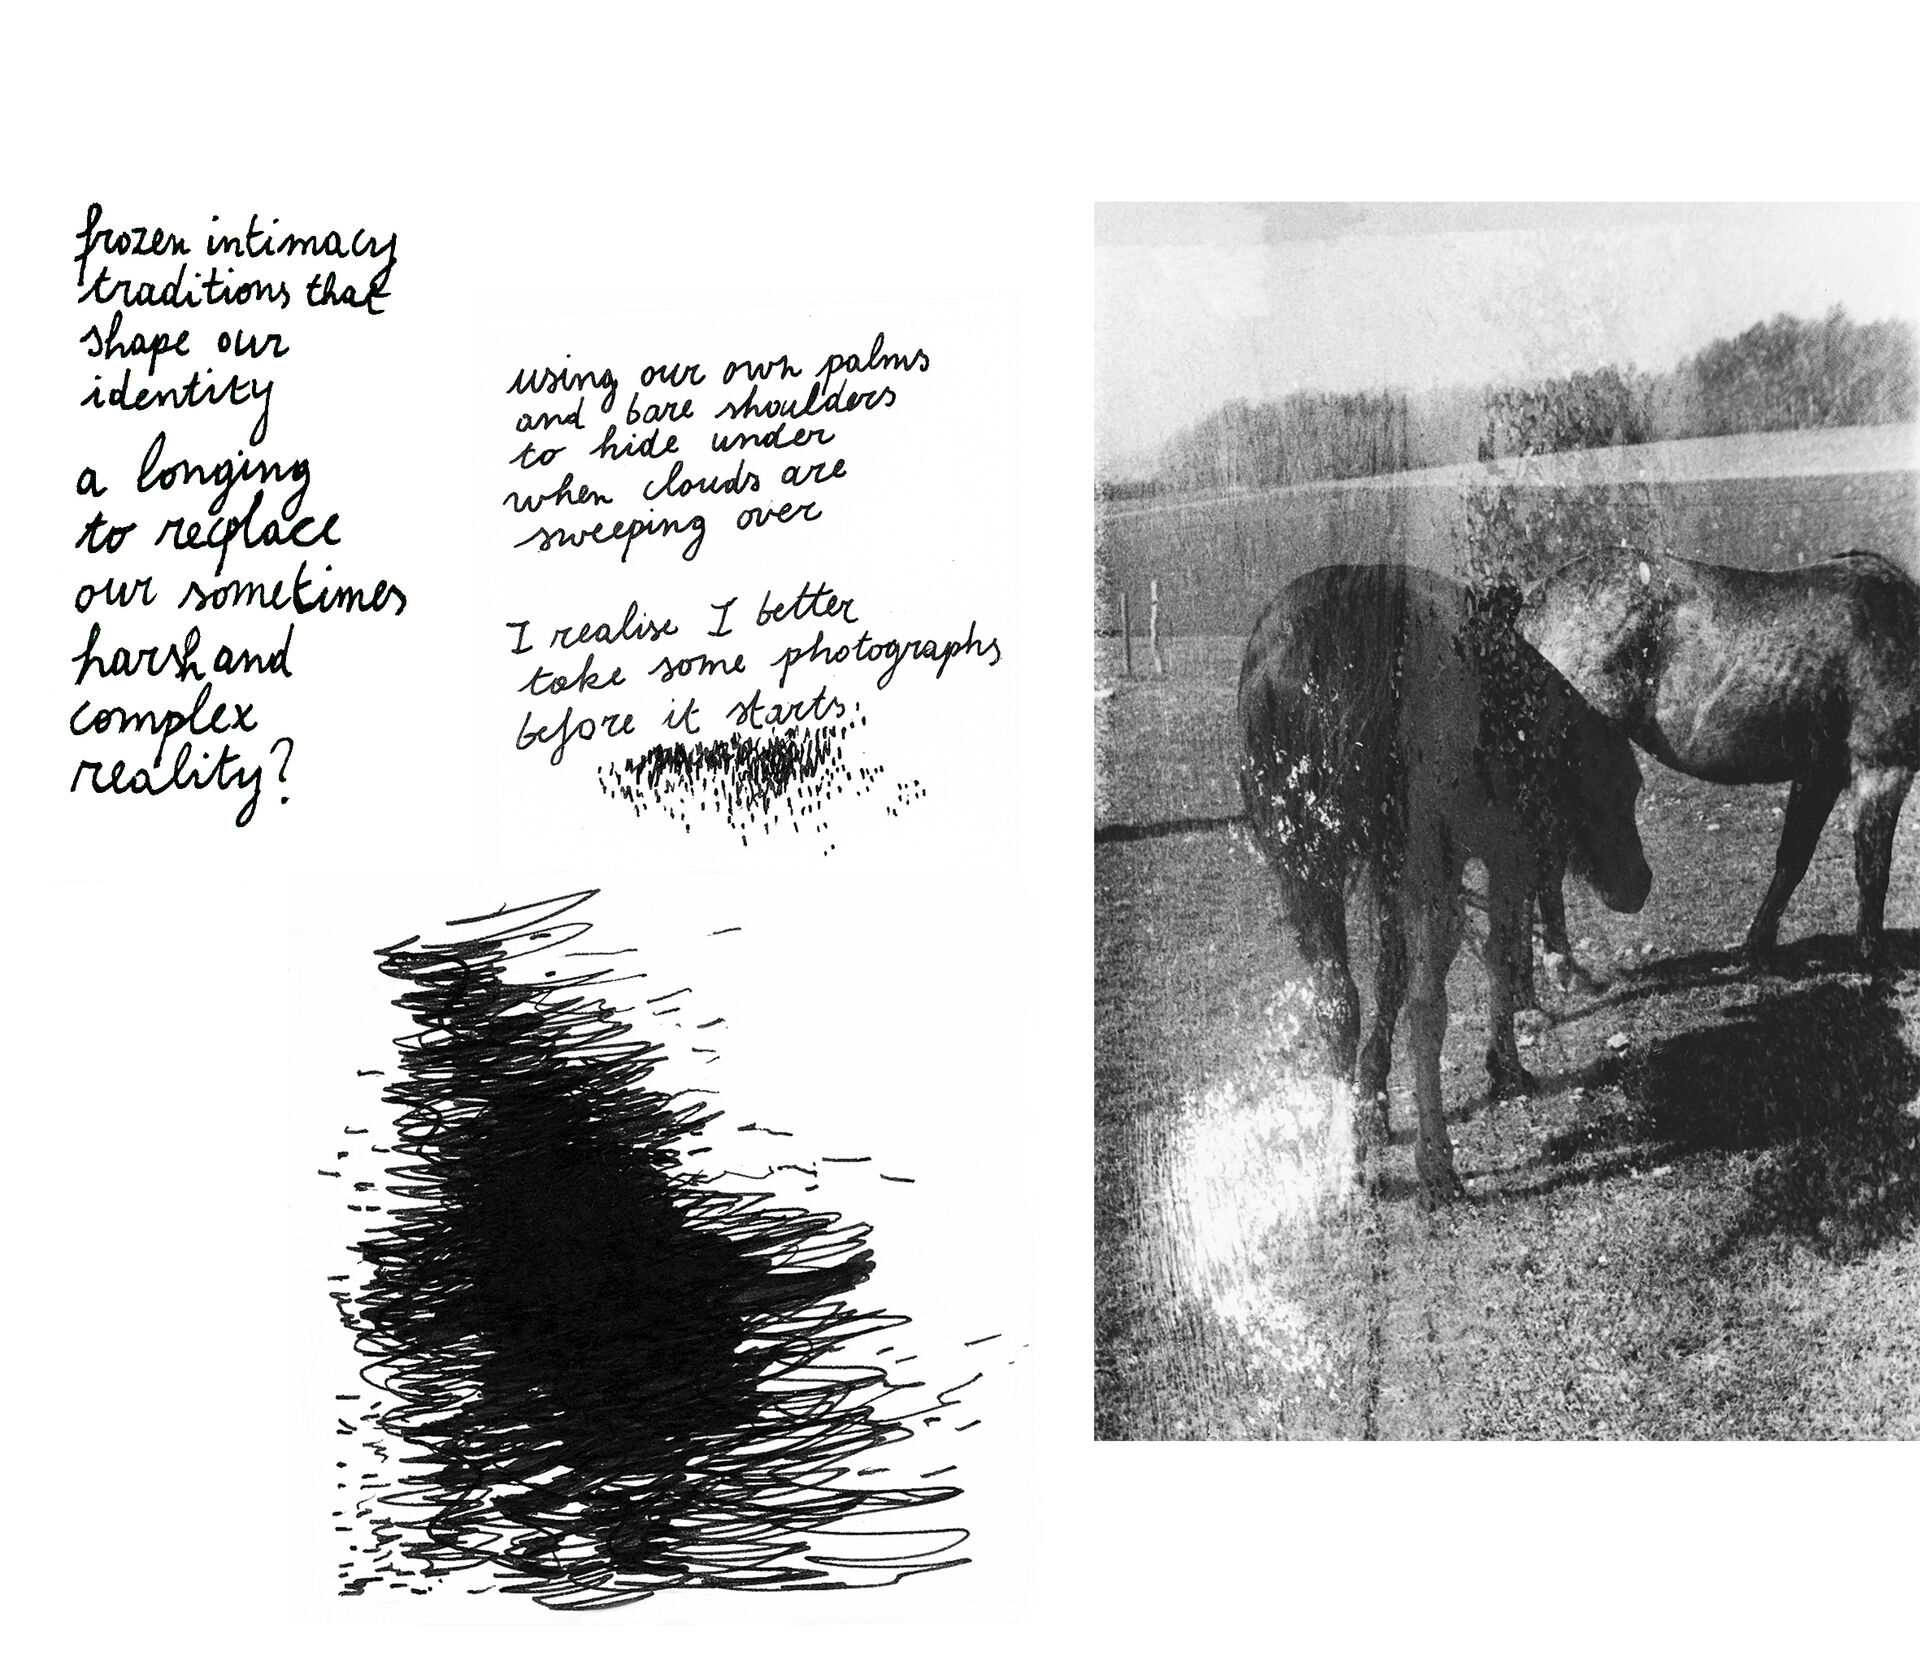 frozen intimacy
traditions that
shape our
identity
a longing
to replace
our sometimes
harsh and
complex
reality?
using our own palms
and bare shoulders
to hide under
when clouds are
sweeping over
I realise I better
take some photographs
before it starts.